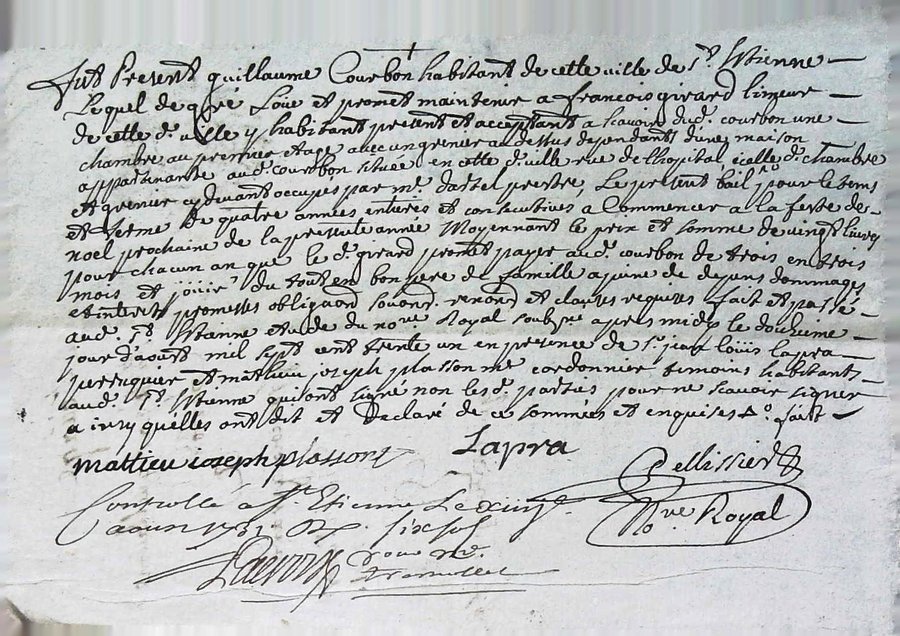 fut Present guillaume Courbon habitant de cette ville de St. Estienne
Lequel de gré Loüe et promet maintenir a francois girard limeur
de cette de. ville y habitant present et acceptant a scavoir dud. courbon une
chambre au premier etage avec un grenier au dessus dependants d'une maison
appartenante aud. courbon située en cette d. ville rue de l'hopital icelle d. chambre
et grenier cy devant occupés par mr. dartel prestre, Le present bail po. pour le tems
et terme de quatre années entieres et consecutives a Commencer a la feste de
noel prochaine de la presente année Moyennant le prix et somme de vingt livres
pour chacun an que le d. girard promet payer aud. courbon de trois en trois
mois et joüir du tout en bon pere de famille a peine de depens dommages
et interets promettes obligeand soumd. renond et clauses requises fait et passé
aud. St. Estienne etude du nore. Royal soubsne. apres midy le douzieme
jour d'aoust mil sept cent trente un en presence de sr. jean loüis lapra
perruquier et mathieu joseph plasson me. cordonnier temoins habitants
aud. St. Estienne qui ont signé non les d. parties pour ne scavoir signer
a ce qu'elles ont dit et Declaré de ce sommées et enquises fait
mattieu ioseph plasson Lapra
Pellissier
Controllé a St. Etienne Le
aoust 1731 six sols
Nore. Royal
pour mr.